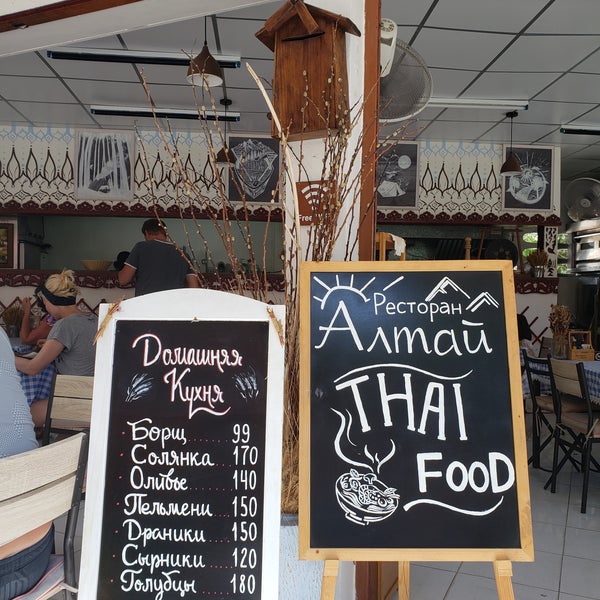 Free
Домашняя
Кухня
Борщ 99
Солянка 170
Оливье 140
Пельмени 150
Драники 150
Сырники 120
Голубцы 180
Ресторан
Алтай
THAI
FOOD